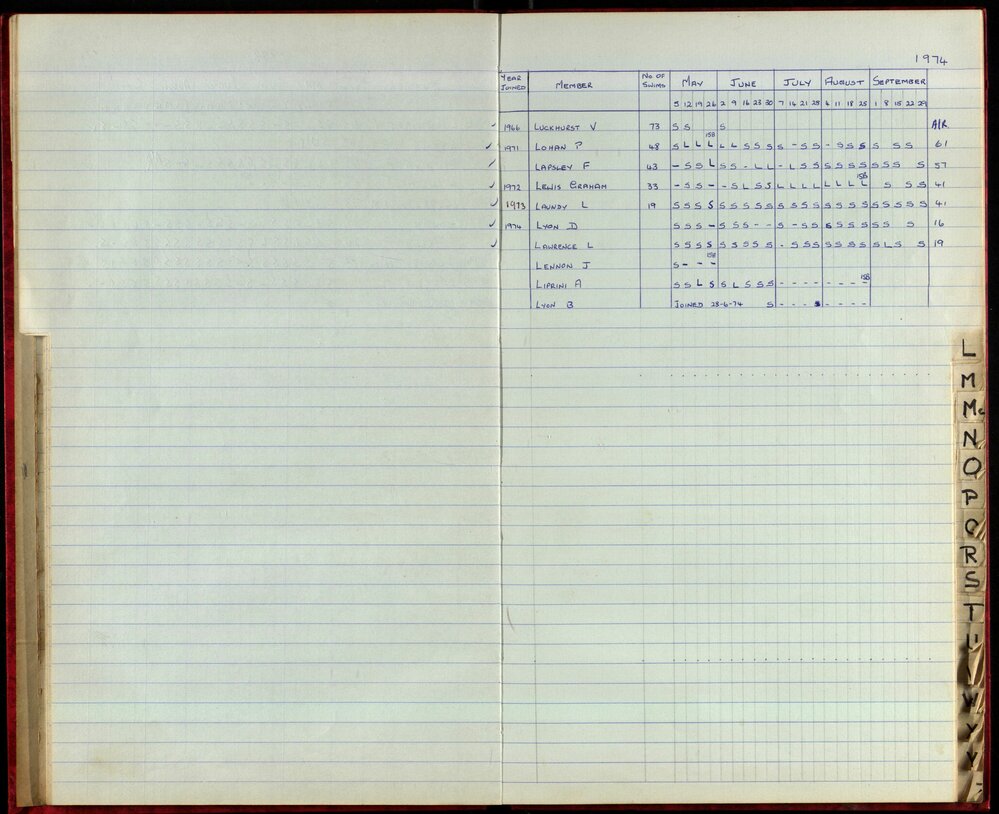 1974
YEAR JOINED MEMBER No OF SWIMS MAY JUNE JULY AUGUST SEPTEMBER
5 12 19 26 2 9 16 23 30 7 14 21 28 4 11 18 25 1 8 15 22 29
1966 LUCKHURST V 73 S S S A/R
158
✓ 1971 LOHAN P 48 S L L L L L S S S S - S S - S S S S S S 61
✓ LAPSLEY F 43 - S S L S S - L L - L S S S S S S S S S S 57
158
✓ 1972 LEWIS GRAHAM 33 - S S - - S L S S L L L L L L L L S S S 41
✓ 1973 LAUNDY L 19 S S S S S S S S S S S S S S S S S S S S S S 41
✓ 1974 LYON D S S S - S S S - - S - S S S S S S S S S 16
✓ LAWRENCE L S S S S S S S S S - S S S S S S S S L S S 19
158
LENNON J S - - -
158
LIPRINI A S S L S S L S S S - - - - - - - -
LYON B JOINED 28-6-74 S - - - S - - - -
L
M
Mc
N
O
P
Q
R
S
T
U
W
Y